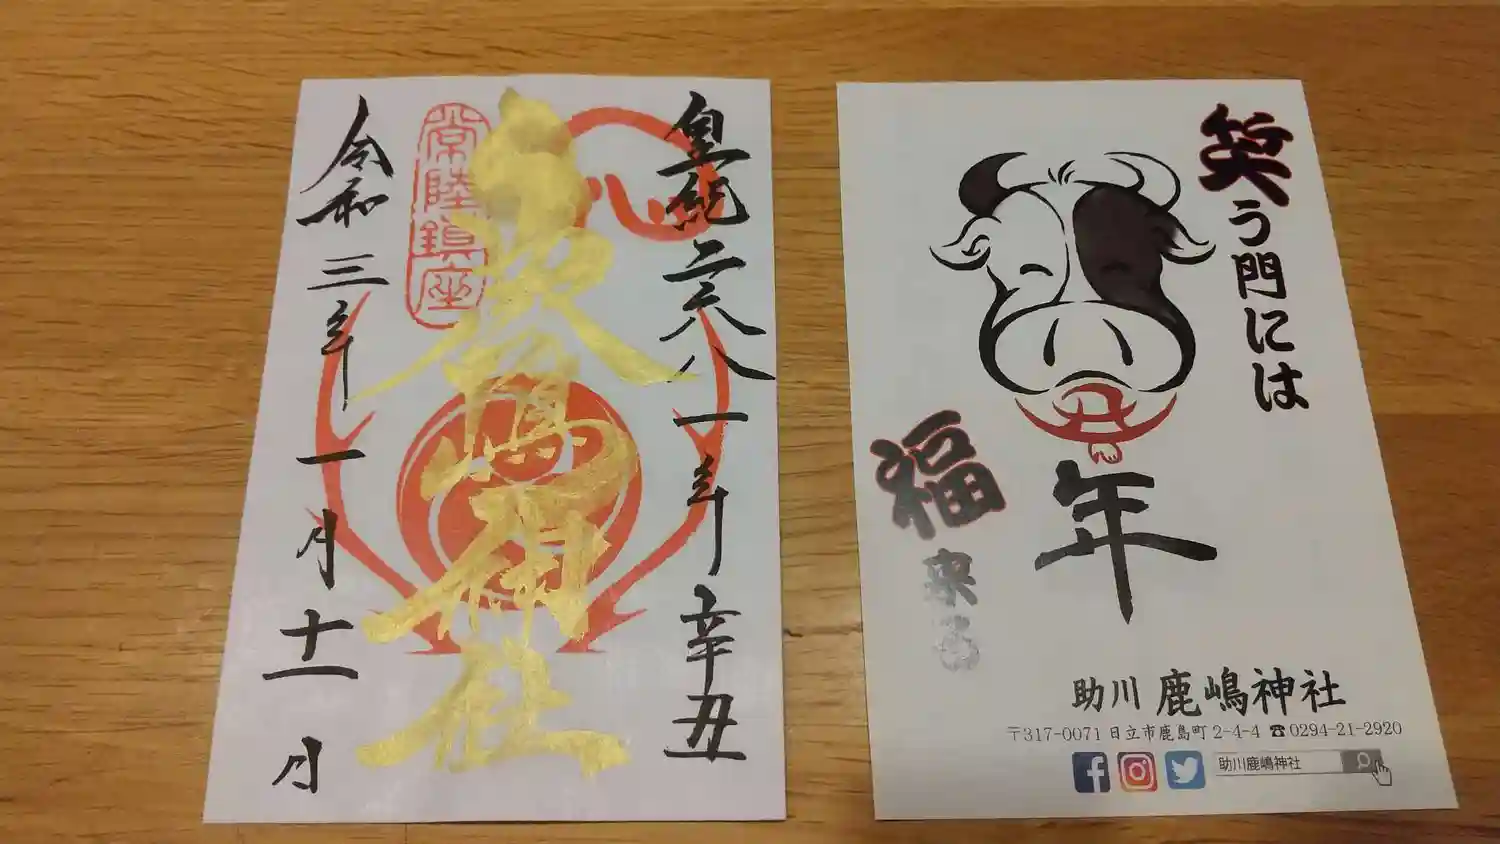 皇紀二六八一年辛丑
鹿嶋神社
常陸鎮座
令和三年一月十一月
笑う門には
福来る
丑
年
助川 鹿嶋神社
〒317-0071 日立市鹿島町 2-4-4 ☎0294-21-2920
助川鹿嶋神社